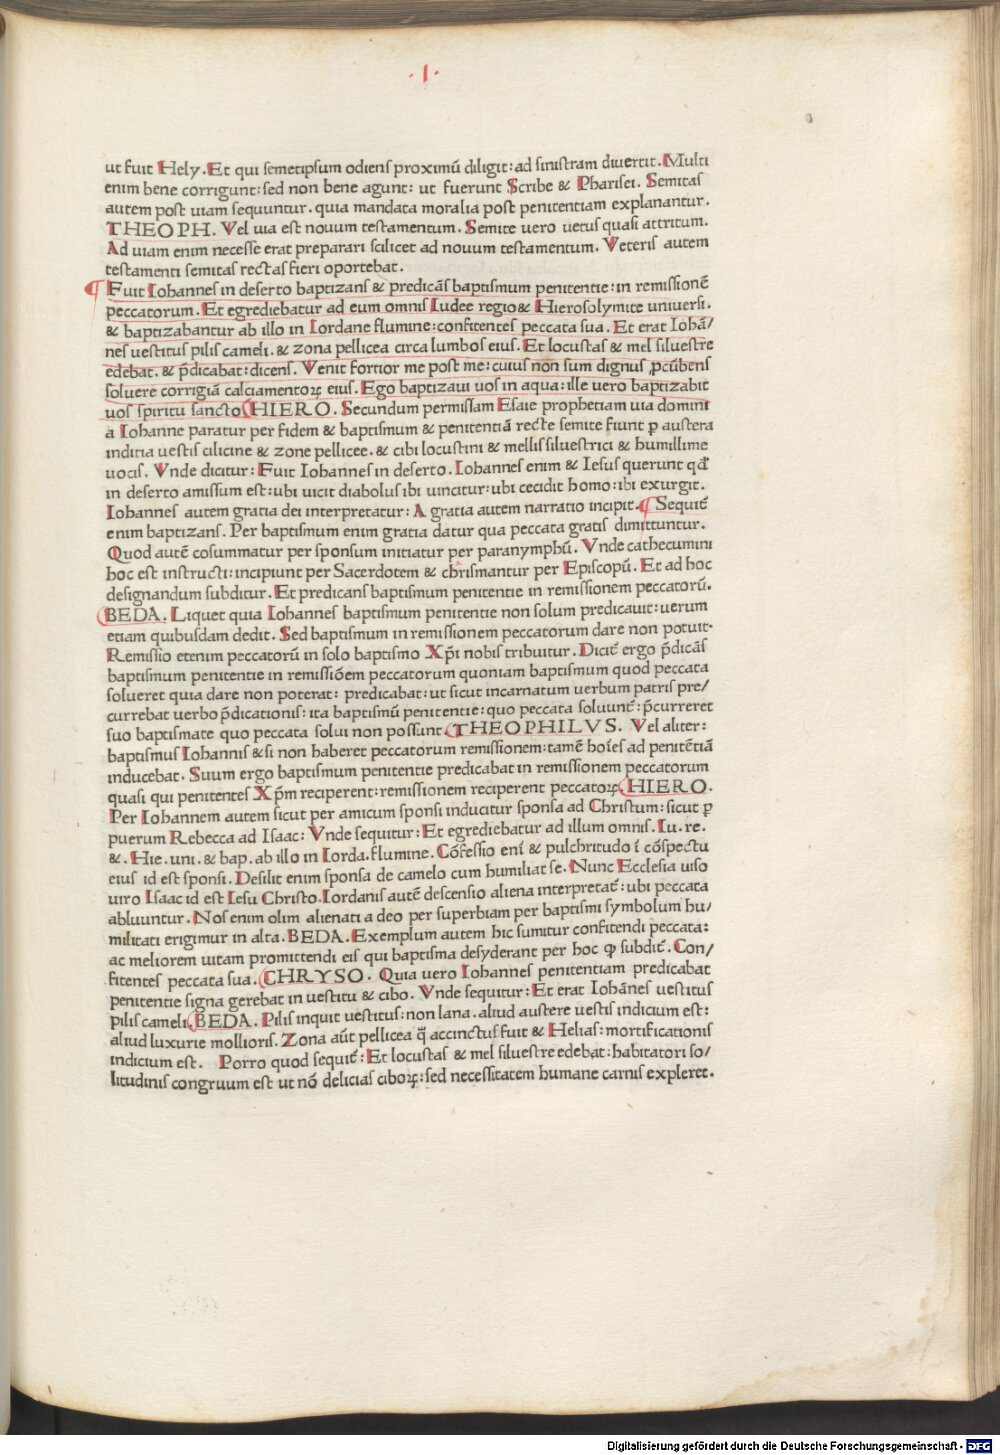 ·I·
ut fuit Hely. Et qui semetipsum odiens proximū diligit: ad sinistram diuertit. Multi
enim bene corrigunt: sed non bene agunt: ut fuerunt Scribe & Pharisei. Semitas
autem post uiam sequuntur. quia mandata moralia post penitentiam explanantur.
THEOPH. Vel uia est nouum testamentum. Semite uero uetus quasi attritum.
Ad uiam enim necesse erat preparari scilicet ad nouum testamentum. Veteris autem
testamenti semitas rectas fieri oportebat.
¶ Fuit Iohannes in deserto baptizans & predicās baptismum penitentie: in remissionē
peccatorum. Et egrediebatur ad eum omnis Iudee regio & Hierosolymite uniuersi.
& baptizabantur ab illo in Iordane flumine: confitentes peccata sua. Et erat Iohā/
nes uestitus pilis cameli. & zona pellicea circa lumbos eius. Et locustas & mel siluestre
edebat. & p̄dicabat: dicens. Venit fortior me post me: cuius non sum dignus ꝓcūbens
soluere corrigiā calciamentoꝝ eius. Ego baptizaui uos in aqua: ille uero baptizabit
uos spiritu sancto HIERO. Secundum permissam Esaie prophetiam uia domini
a Iohanne paratur per fidem & baptismum & penitentiā recte semite fiunt ꝑ austera
inditia uestis cilicine & zone pellicee. & cibi locustini & mellis siluestrici & humillime
uocis. Vnde dicitur: Fuit Iohannes in deserto. Iohannes enim & Iesus querunt qd̄
in deserto amissum est: ubi uicit diabolus ibi uincitur: ubi cecidit homo: ibi exurgit.
Iohannes autem gratia dei interpretatur: A gratia autem narratio incipit. ¶ Sequit̄
enim baptizans. Per baptismum enim gratia datur qua peccata gratis dimittuntur.
Quod autē cosummatur per sponsum initiatur per paranymphū. Vnde cathecumini
hoc est instructi: incipiunt per Sacerdotem & chrismantur per Episcopū. Et ad hoc
designandum subditur. Et predicans baptismum penitentie in remissionem peccatorū.
BEDA. Liquet quia Iohannes baptismum penitentie non solum predicauit: uerum
etiam quibusdam dedit. Sed baptismum in remissionem peccatorum dare non potuit.
Remissio etenim peccatorū in solo baptismo Xp̄i nobis tribuitur. Dicit̄ ergo p̄dicās
baptismum penitentie in remissiōem peccatorum quoniam baptismum quod peccata
solueret quia dare non poterat: predicabat: ut sicut incarnatum uerbum patris pre/
currebat uerbo p̄dicationis: ita baptismū penitentie: quo peccata soluunt̄: p̄curreret
suo baptismate quo peccata solui non possunt. THEOPHILVS. Vel aliter:
baptismus Iohannis & si non haberet peccatorum remissionem: tamē hoīes ad penitētiā
inducebat. Suum ergo baptismum penitentie predicabat in remissionem peccatorum
quasi qui penitentes Xp̄m reciperent: remissionem reciperent peccatoꝝ HIERO.
Per Iohannem autem sicut per amicum sponsi inducitur sponsa ad Christum: sicut ꝑ
puerum Rebecca ad Isaac: Vnde sequitur: Et egrediebatur ad illum omnis. Iu. re.
&. Hie. uni. & bap. ab illo in Iorda. flumine. Cōfessio eni̅ & pulchritudo ī cōspectu
eius id est sponsi. Desilit enim sponsa de camelo cum humiliat se. Nunc Ecclesia uiso
uiro Isaac id est Iesu Christo. Iordanis autē descensio aliena interpretat̄: ubi peccata
abluuntur. Nos enim olim alienati a deo per superbiam per baptismi symbolum hu/
militati erigimur in alta. BEDA. Exemplum autem hic sumitur confitendi peccata:
ac meliorem uitam promittendi eis qui baptisma desyderant per hoc ꝙ subdit̄. Con/
fitentes peccata sua. CHRYSO. Quia uero Iohannes penitentiam predicabat
penitentie signa gerebat in uestitu & cibo. Vnde sequitur: Et erat Iohānes uestitus
pilis cameli. BEDA. Pilis inquit uestitus: non lana. aliud austere uestis indicium est:
aliud luxurie mollioris. Zona aūt pellicea q̄ accinctus fuit & Helias: mortificationis
indicium est. Porro quod sequit̄: Et locustas & mel siluestre edebat: habitatori so/
litudinis congruum est ut nō delicias ciboꝝ: sed necessitatem humane carnis expleret.
Digitalisierung gefördert durch die Deutsche Forschungsgemeinschaft - DFG